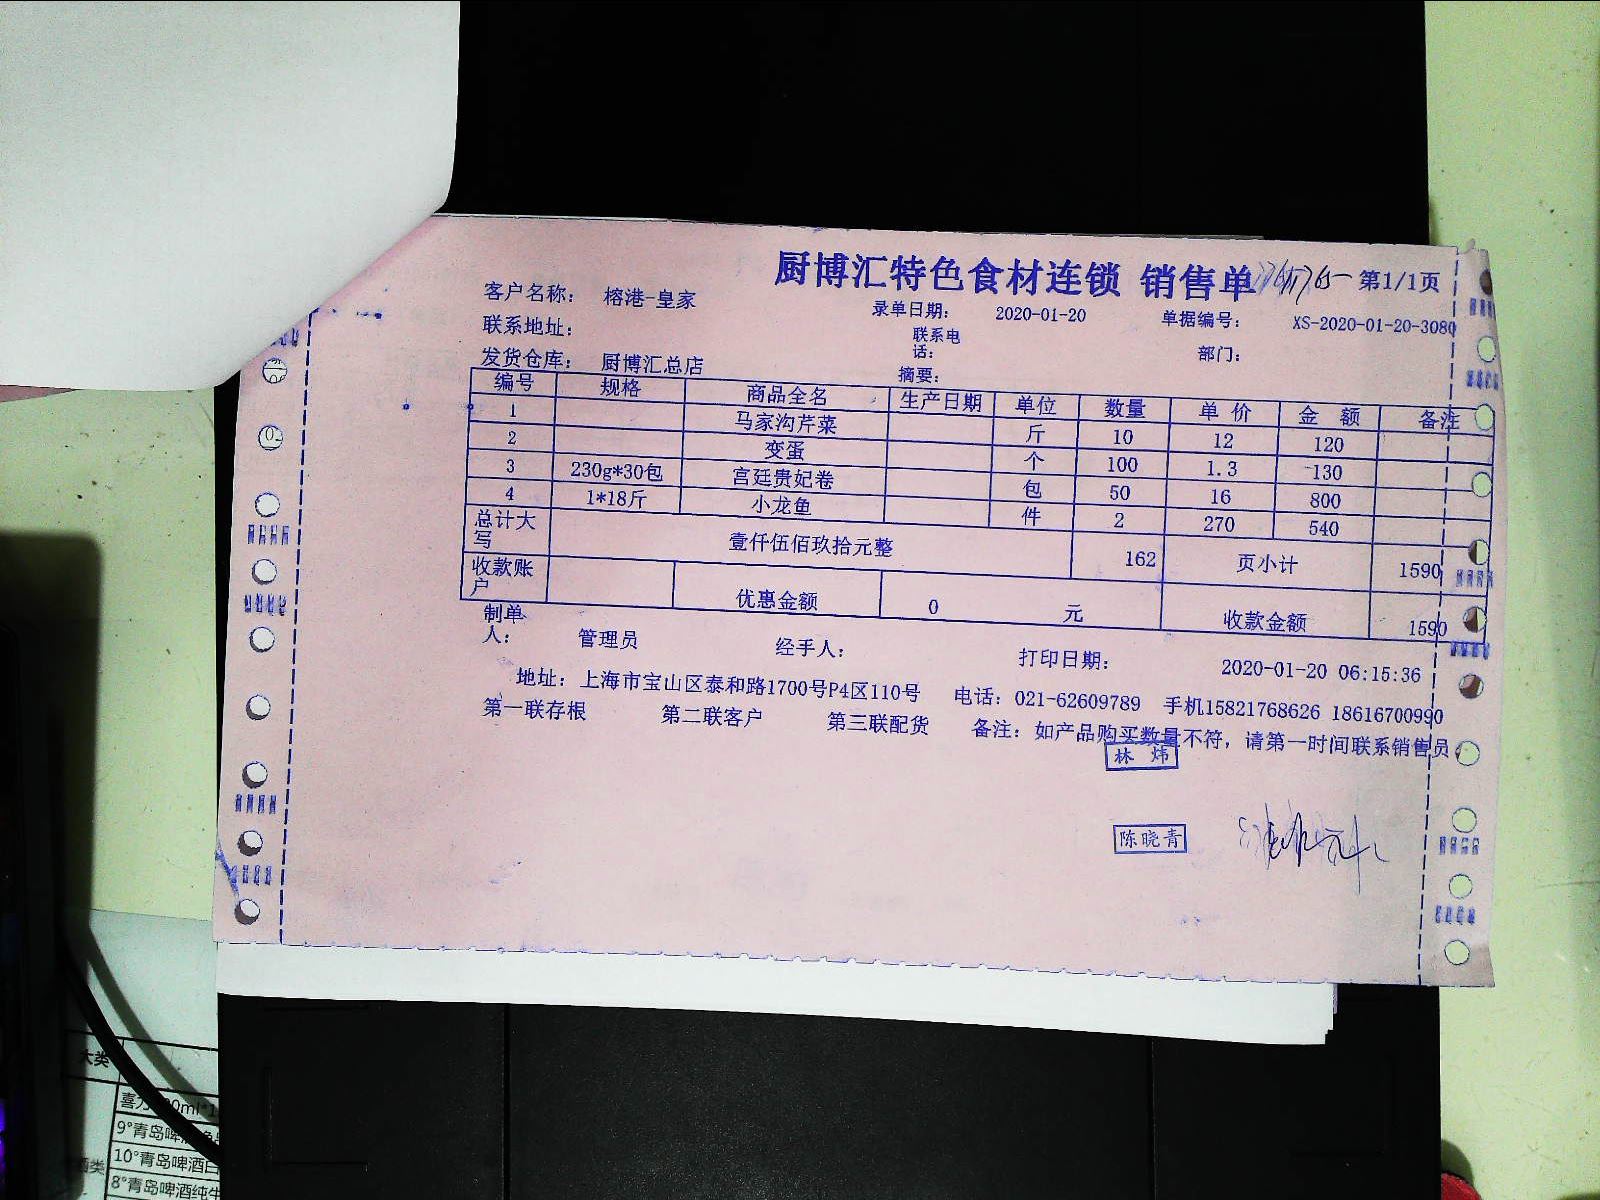 厨博汇特色食材连锁 销售单 第1/1页
客户名称： 榕港-皇家 录单日期： 2020-01-20 单据编号： XS-2020-01-20-3080
联系地址： 联系电话： 部门：
发货仓库： 厨博汇总店 摘要：
编号 规格 商品全名 生产日期 单位 数量 单 价 金 额 备注
1 马家沟芹菜 斤 10 12 120
2 变蛋 个 100 1.3 130
3 230g*30包 宫廷贵妃卷 包 50 16 800
4 1*18斤 小龙鱼 件 2 270 540
总计大写 壹仟伍佰玖拾元整 162 页小计 1590
收款账户 优惠金额 0 元 收款金额 1590
制单人： 管理员 经手人： 打印日期： 2020-01-20 06:15:36
地址：上海市宝山区泰和路1700号P4区110号 电话：021-62609789 手机15821768626 18616700990
第一联存根 第二联客户 第三联配货 备注：如产品购买数量不符，请第一时间联系销售员
林 炜
陈晓青
大类
9°青岛啤酒
10°青岛啤酒
8°青岛啤酒纯生
酒类